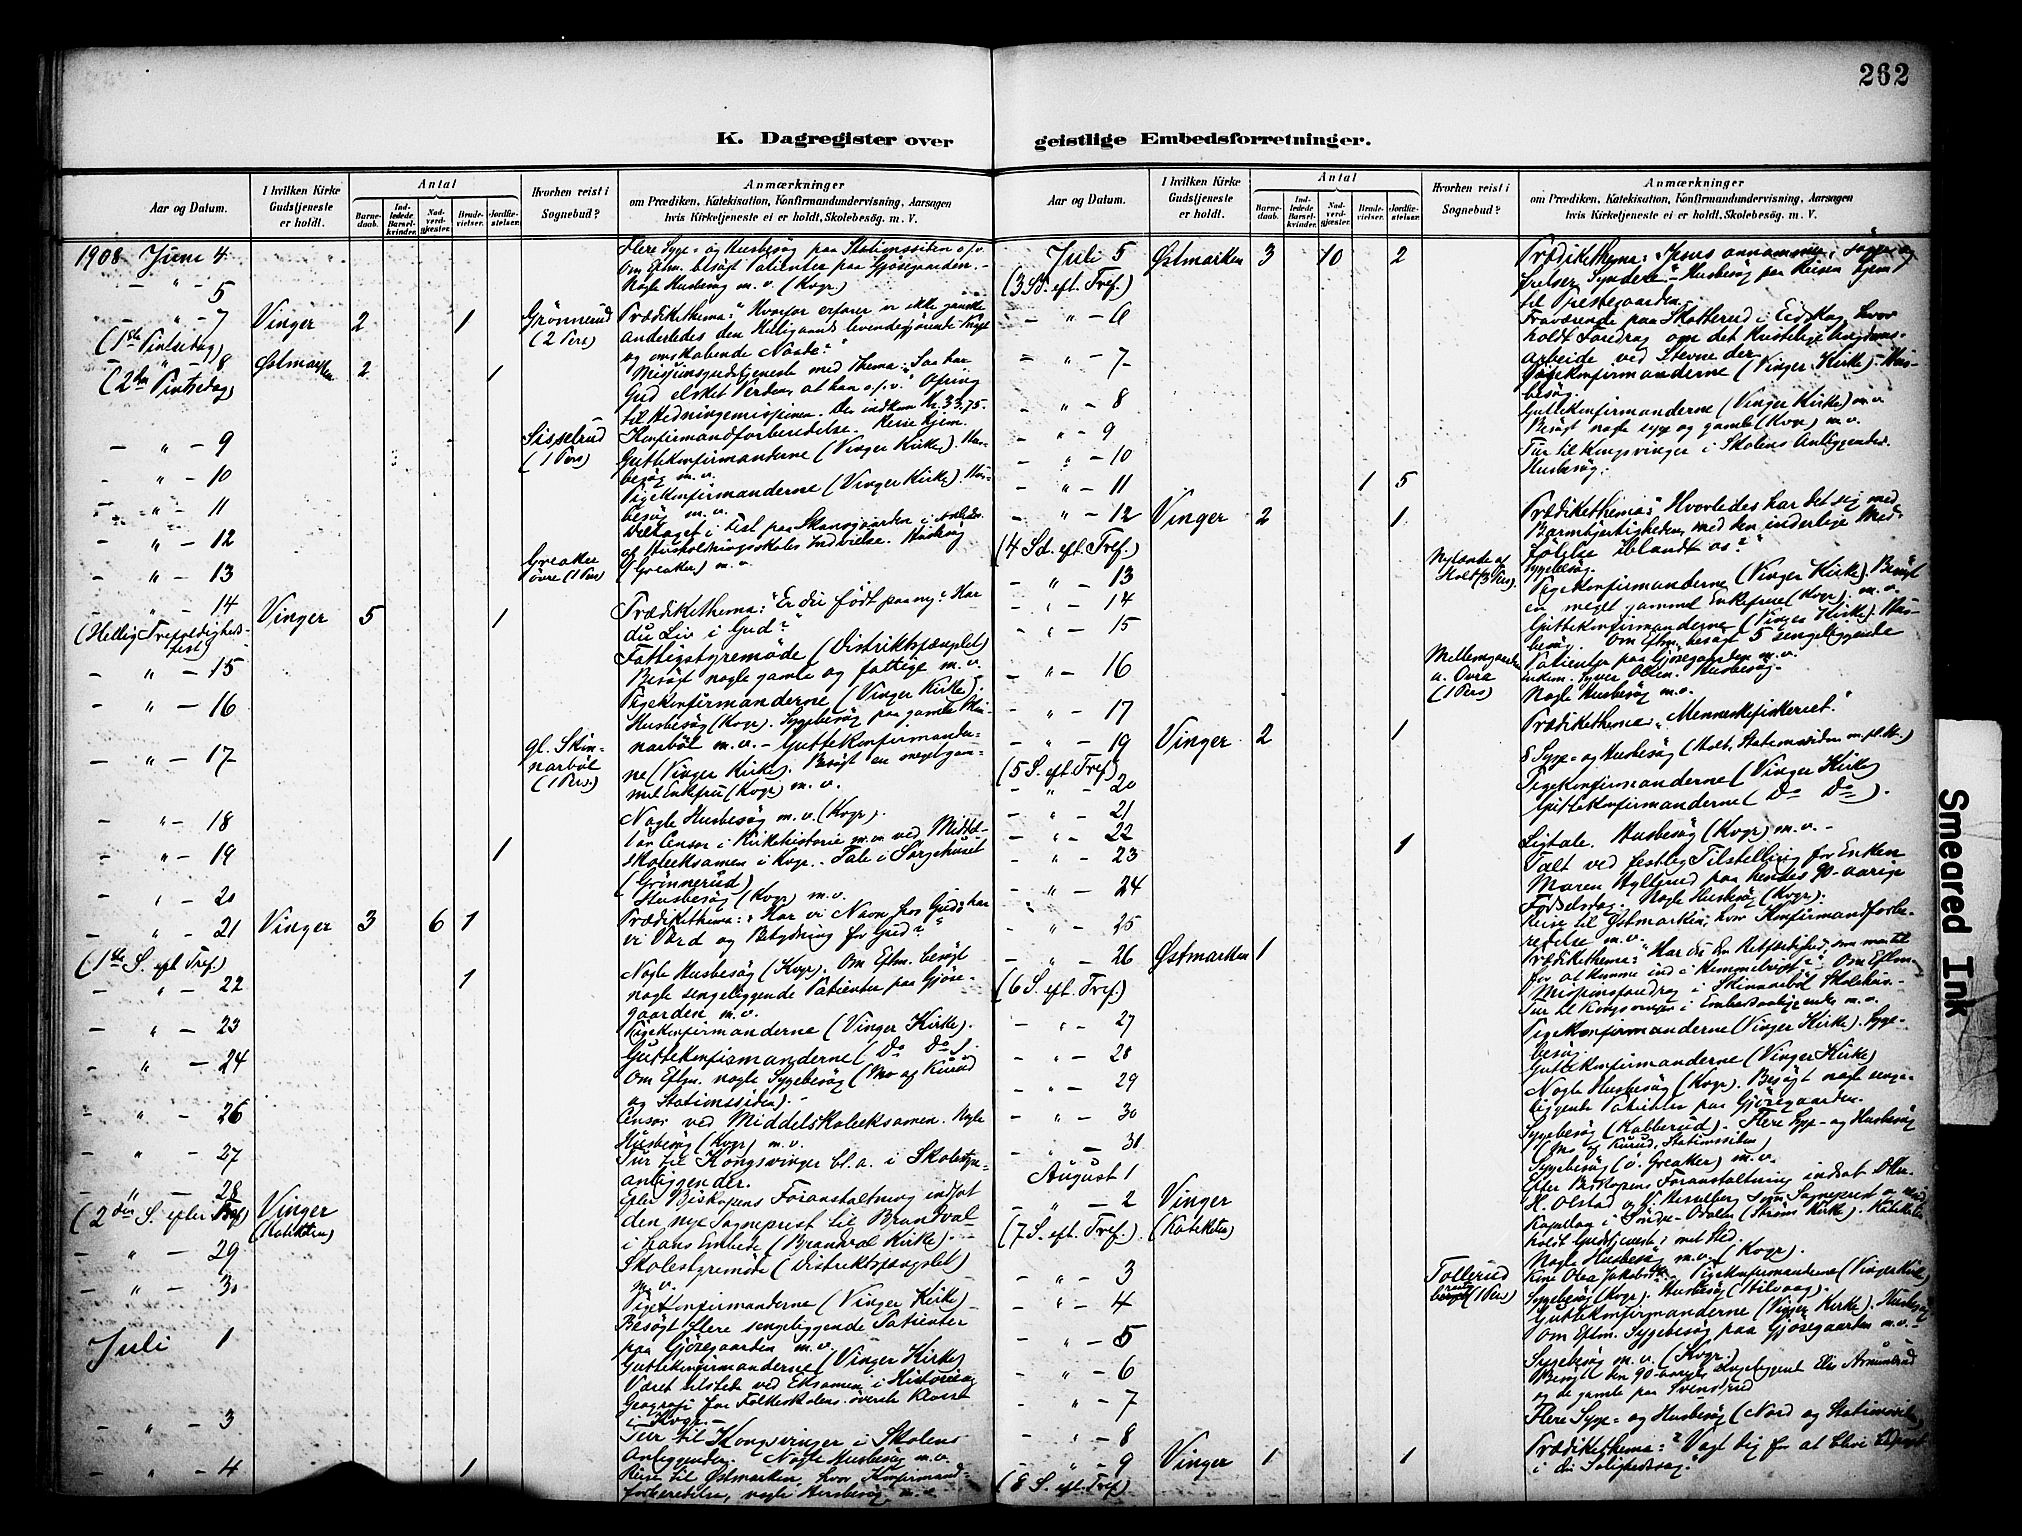 262
K. Dagregister over geistlige Embedsforretninger.
Aar og Datum.
I hvilken Kirke Gudstjeneste er holdt.
Antal
Barnedaab.
Indledede Barselkvinder.
Nadverdgjester.
Brudevielser.
Jordfæstelser.
Hvorhen reist i Sognebud?
Anmærkninger
om Prædiken, Katekisation, Konfirmandundervisning, Aarsagen
hvis Kirketjeneste ei er holdt, Skolebesøg. m. V.
1908 Juni 4
Flere Syge- og Husbesøg paa Stationssiden o.s.v.
Om Eftm. besøgt Patienter paa Gjøsegaarden. -
- " - 5
Nogle Husbesøg m.v. (Kvgr.)
- " - 7 Vinger 2 1 Grønnerud Prædikethema: "Hvorfor erfarer vi ikke ganske
(1ste Pintsedag) (2 Pers) anderledes den Helligaands levendegjørende Kraft
og omskabende Naade?"
- " - 8 Østmarken 2 1 Missionsgudstjeneste med Thema: Saa har
(2den Pintsedag) Gud elsket Verden, at han o.s.v." Ofring
til Hedningemissionen. Der indkom Kr. 33,75.
- " - 9 Sisselrud Konfirmandforberedelse. Reise hjem.
(1 Pers) Guttekonfirmanderne (Vinger Kirke). Hus-
- " - 10 besøg m.v.
Pigekonfirmanderne (Vinger Kirke). Hus-
- " - 11 besøg m.v.
Deltaget i Fest paa Skansgaarden i
- " - 12 af Husholdningsskoles Indvielse. Husbesøg
- " - 13 Greaker øvre (1 Pers) (Greaker) m.v.
- " - 14 Vinger 5 1 Prædikethema: "Er du født paany? Har
(Hellig Trefoldigheds- fest) du Liv i Gud?"
Fattigstyremøde (Distriktsfængslet)
- " - 15 Besøgt nogle gamle og fattige m.v.
- " - 16 Pigekonfirmanderne (Vinger Kirke).
Husbesøg (Kvgr). Sygebesøg paa gamle Skin-
- " - 17 gl. Skin- narbøl m.v. - Guttekonfirmander-
narbøl ne (Vinger Kirke). Besøgt en meget gam-
(1 Pers.) mel Enkefru (Kvgr) m.v.
- " - 18 Nogle Husbesøg m.v. (Kvgr).
Var Censor i Kirkehistorie m.m ved Middel-
- " - 19 1 skoleeksamen i Kvgr. - Tale i Sørgehuset
(Grønnerud)
- " - 20 Husbesøg (Kvgr) m.v.
- " - 21 Vinger 3 6 1 Prædikethema: "Har vi Navn hos Gud? har
(1ste S. eft. Tref.) vi Værd og Betydning for Gud?"
Nogle Husbesøg (Kvgr). Om Eftm. besøgt
- " - 22 1 nogle sengeliggende Patienter paa Gjøse-
gaarden m.v.
- " - 23 Pigekonfirmanderne (Vinger Kirke).
- " - 24 Guttekonfirmanderne (Do Do).
Om Eftm. nogle Sygebesøg (Mo af Kurud
og Stationssiden). -
- " - 26 Censor ved Middelskoleeksamen. Nogle
Husbesøg (Kvgr) m.v.
- " - 27 Tur til Kongsvinger bl.a. i Skolestyre-
anliggender.
- " - 28 Vinger Efter Biskopens Foranstaltning indsat
(2den S. efter Tref) (Katekten) den nye Sogneprest til Brandval
i hans Embede (Brandval Kirke). -
- " - 29 Skolestyremøde (Distriktsfængslet)
m.v.
- " - 30 Pigekonfirmanderne (Vinger Kirke) -
Besøgt flere sengeliggende Patienter
Juli 1 paa Gjøsegaarden m.v.
Guttekonfirmanderne (Vinger Kirke)
Været tilstede ved Eksamen i Historie og
Geografi for Folkeskolens øverste Klasse
- " - 3 i Kvgr. -
Tur til Kongsvinger i Skolens
Anliggender. Nogle Husbesøg m.v.
- " - 4 1 Reise til Østmarken, hvor Konfirmand-
forberedelse, nogle Husbesøg m.v.
Aar og Datum.
I hvilken Kirke Gudstjeneste er holdt.
Antal
Barnedaab.
Indledede Barselkvinder.
Nadverdgjester.
Brudevielser.
Jordfæstelser.
Hvorhen reist i Sognebud?
Anmærkninger
om Prædiken, Katekisation, Konfirmandundervisning, Aarsagen
hvis Kirketjeneste ei er holdt, Skolebesøg. m. V.
Juli 5 Østmarken 3 10 2 Prædikethema: "Jesus annammer, søger og
(3 S. eft. Tref.) frelser Syndere". Husbesøg paa Reisen hjem
til Prestegaarden.
- " - 6 Fraværende paa Skotterud i Eidskog hvor
holdt Foredrag om det kristelige Ungdoms-
- " - 7 arbeide ved Stevne der.
Pigekonfirmanderne (Vinger Kirke). Hus-
besøg.
- " - 8 Guttekonfirmanderne (Vinger Kirke) m.v.
- " - 9 Besøgt nogle syge og gamle (Kvgr) m.v.
- " - 10 Tur til Kongsvinger i Skolens Anliggender.
Husbesøg.
- " - 11 1 5
- " - 12 Vinger 2 1 Prædikethema: "Hvorledes har det sig med
(4 Sd. eft. Tref.) Barmhjertigheden, med den inderlige Med-
følelse iblandt os?"
- " - 13 Nylande af Holt (3 Pers). Sygebesøg.
Pigekonfirmanderne (Vinger Kirke). Besøgt
- " - 14 en meget gammel Enkefrue (Kvgr). m.v.
- " - 15 Guttekonfirmanderne (Vinger Kirke). Hus-
besøg. Om Eftm. besøgt 5 sengeliggende
- " - 16 Mellemgaarden a. Øvre (1 Pers) Patienter paa Gjøsegaarden m.v.
Husbesøg.
- " - 17 Nogle Husbesøg m.v.
- " - 19 Vinger 2 1 Prædikethema: "Menneskefiskeriet."
(5 S. eft. Tref) 8 Syge- og Husbesøg (Holt, Stationssiden m.fl. St.)
- " - 20 Pigekonfirmanderne (Vinger Kirke)
- " - 21 Guttekonfirmanderne (Do Do).
- " - 22
- " - 23 1 Ligtale. Husbesøg (Kvgr) m.v. -
Talt ved festlig Tilstelling for Enken
- " - 24 Maren Hyttjernd paa hendes 90-aarige
Fødselsdag. Nogle Husbesøg (Kvgr).
- " - 25 Reise til Østmarken, hvor Konfirmandforbe-
redelse m.v.
- " - 26 Østmarken 1 Prædikethema: "Har du den Retfærdighed, som maa til
(6 S. eft. Tref.) for at komme ind i Himmelriget?" Om Eftm.
Missionsforedrag i Skinnarbøl Skolehus. -
Tur til Kongsvinger i Embedsanliggender m.v.
- " - 27 Pigekonfirmanderne (Vinger Kirke). Syge-
besøg.
- " - 28 Guttekonfirmanderne (Vinger Kirke)
- " - 29 Nogle Husbesøg (Kvgr). Besøgt nogle senge-
liggende Patienter paa Gjøsegaarden.
- " - 30 Sygebesøg (Kobberud). Flere Syge- og Husbesøg
- " - 31 (Mo af Kurud, Stationssiden)
Sygebesøg (ö. Greaker) m.v.
August 1
- " - 2 Vinger Efter Biskopens Foranstaltning indsat
(7 S. eft. Tref.) (Katekten) H. Olstad og V. Hesselberg som Sogneprest og res.
Kapellan i Søndre-Odalen (Strøms Kirke). Katekten
holdt Gudstjeneste i mit Sted.
Nogle Husbesøg m.v. (Kvgr).
- " - 3 Tollerud (1 Pers) Pigekonfirmanderne (Vinger Kirke)
- " - 4 Sygebesøg (Kvgr). Husbesøg
Guttekonfirmanderne (Vinger Kirke). Husbesøg
- " - 5 Om Eftm. Sygebesøg paa Gjøsegaarden m.v. -
Sygebesøg m.v. (Kvgr.)
- " - 6 Besøgt den 90-aarige
- " - 7 og de gamle paa Svenstrud
Flere Syge- og Husbesøg (Nord og Stationssiden)
- " - 8
- " - 9 Vinger 1 1 Prædikethema: "Vogt dig for at blive
(8 S. eft. Tref) i din Salighedssag."
Smeared Ink